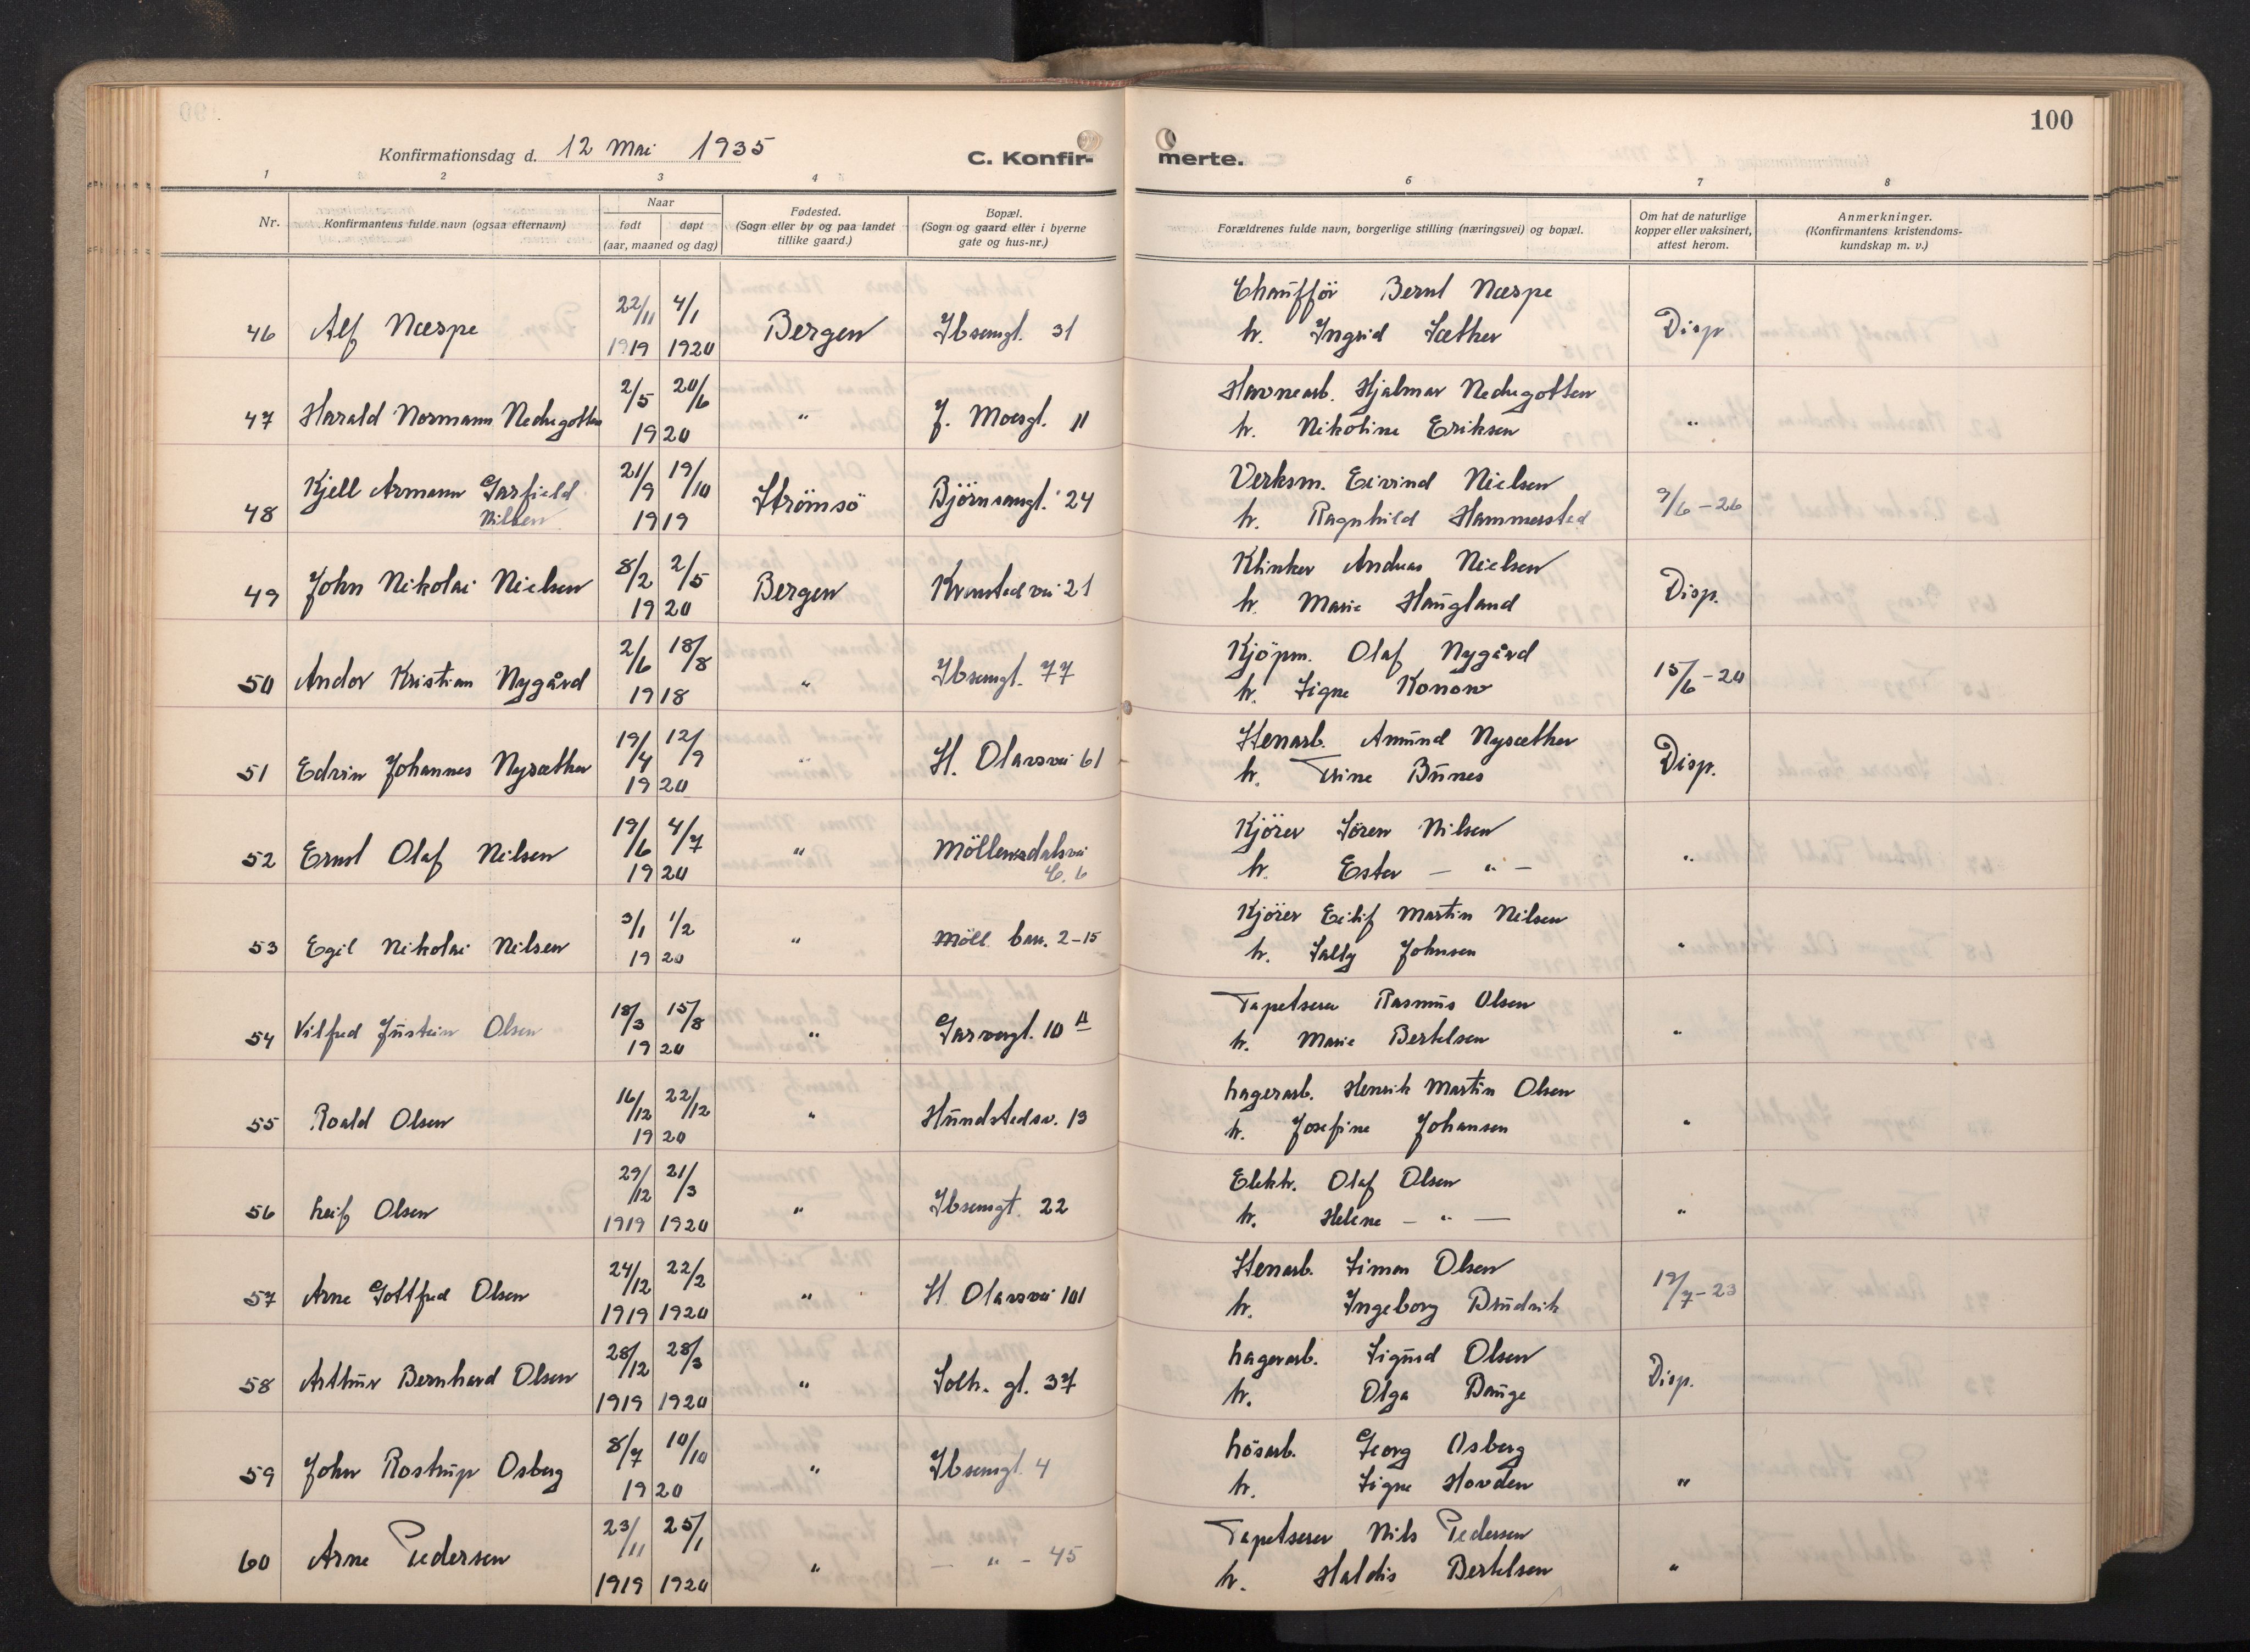 100
Konfirmationsdag d. 12 Mai 1935
C. Konfir- merte.
1 2 3 4 5 6 7 8
Nr.
Konfirmantens fulde navn (ogsaa efternavn)
Naar
født døpt
(aar, maaned og dag)
Fødested.
(Sogn eller by og paa landet
tillike gaard.)
Bopæl.
(Sogn og gaard eller i byerne
gate og hus-nr.)
Forældrenes fulde navn, borgerlige stilling (næringsvei) og bopæl.
Om hat de naturlige
kopper eller vaksinert,
attest herom.
Anmerkninger.
(Konfirmantens kristendoms-
kundskap m. v.)
22/11 4/1 Chaufför Bernt Næspe
46 Alf Næspe 1919 1920 Bergen Ibsensgt. 31 h. Ingrid Sæther Disp
2/5 20/6 Havnearb. Hjalmar Nedregotten
47 Harald Normann Nedregotten 1920 " J. Moesgt. 11 h. Nikoline Eriksen "
Kjell Armann Garfield 21/9 19/10 Verksm. Eivind Nielsen
48 Nilsen 1919 Strömsö Björnsonsgt. 24 h. Ragnhild Hammersted 9/6-26
8/2 2/5 Klinker Andreas Nielsen
49 John Nikolai Nielsen 1920 Bergen Kronstedvei 21 h. Marie Haugland Disp.
2/6 18/8 Kjöpm. Olaf Nygård
50 Andor Kristian Nygård 1918 " Ibsensgt. 77 h. Signe Konow 15/6-20
19/4 12/9 Stenarb. Amund Nysæther
51 Edvin Johannes Nysæther 1920 " St. Olavsvei 61 h. Trine Bunes Disp.
19/6 4/7 Kjörer Sören Nilsen
52 Ernst Olaf Nilsen 1920 " Möllendalsvei h. Ester - " - "
C. 6
3/1 1/2 Kjörer Eilif Martin Nilsen
53 Egil Nikolai Nilsen 1920 " Möll. bak. 2-15 h. Sally Johnsen "
18/3 15/8 Tapetserer Rasmus Olsen
54 Vilfred Justein Olsen 1920 " Garvergt. 10 A h. Marie Bertelsen "
16/12 22/12 Lagerarb. Henrik Martin Olsen
55 Roald Olsen 1920 " Hunstedsv. 13 h. Josefine Johansen "
29/12 21/3 Elektr. Olaf Olsen
56 Leif Olsen 1919 1920 " Ibsensgt. 22 h. Helene - " - "
24/12 22/2 Stenarb. Simon Olsen
57 Arne Gottfred Olsen 1919 1920 " St. Olavsvei 101 h. Ingeborg Brudvik 19/7-23
28/12 28/3 Lagerarb. Sigurd Olsen
58 Arthur Bernhard Olsen 1919 1920 " Solh. gt. 37 h. Olga Bauge Disp.
8/7 10/10 Lösarb. Georg Osberg
59 John Rostrup Osberg 1920 " Ibsensgt. 4 h. Signe Hovden "
23/11 25/1 Tapetserer Nils Pedersen
60 Arne Pedersen 1919 1920 " - " - 45 h. Haldis Bertelsen "